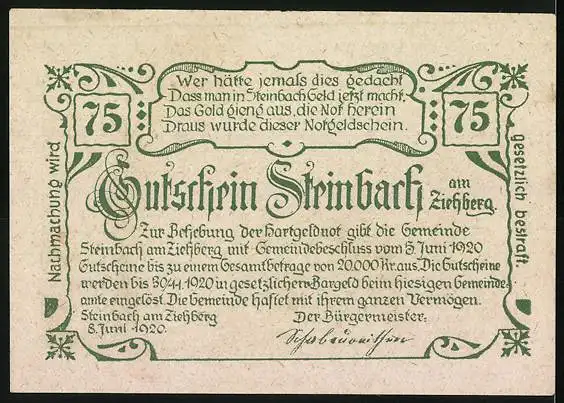 Wer hätte jemals dies gedacht
Dass man in Steinbach Geld jetzt macht.
Das Gold gieng aus, die Not herein
Draus wurde dieser Notgeldschein.
75
75
Gutschein Steinbach am Ziehberg.
Zur Behebung der Hartgeldnot gibt die Gemeinde
Steinbach am Ziehberg mit Gemeindebeschluss vom 3. Juni 1920
Gutscheine bis zu einem Gesamtbetrage von 20.000 Kr. aus. Die Gutscheine
werden bis 1920 in gesetzlichem Bargeld beim hiesigen Gemeinde-
amte eingelöst. Die Gemeinde haftet mit ihrem ganzen Vermögen.
Steinbach am Ziehberg
8. Juni 1920.
Der Bürgermeister:
Nachmachung wird
gesetzlich bestraft